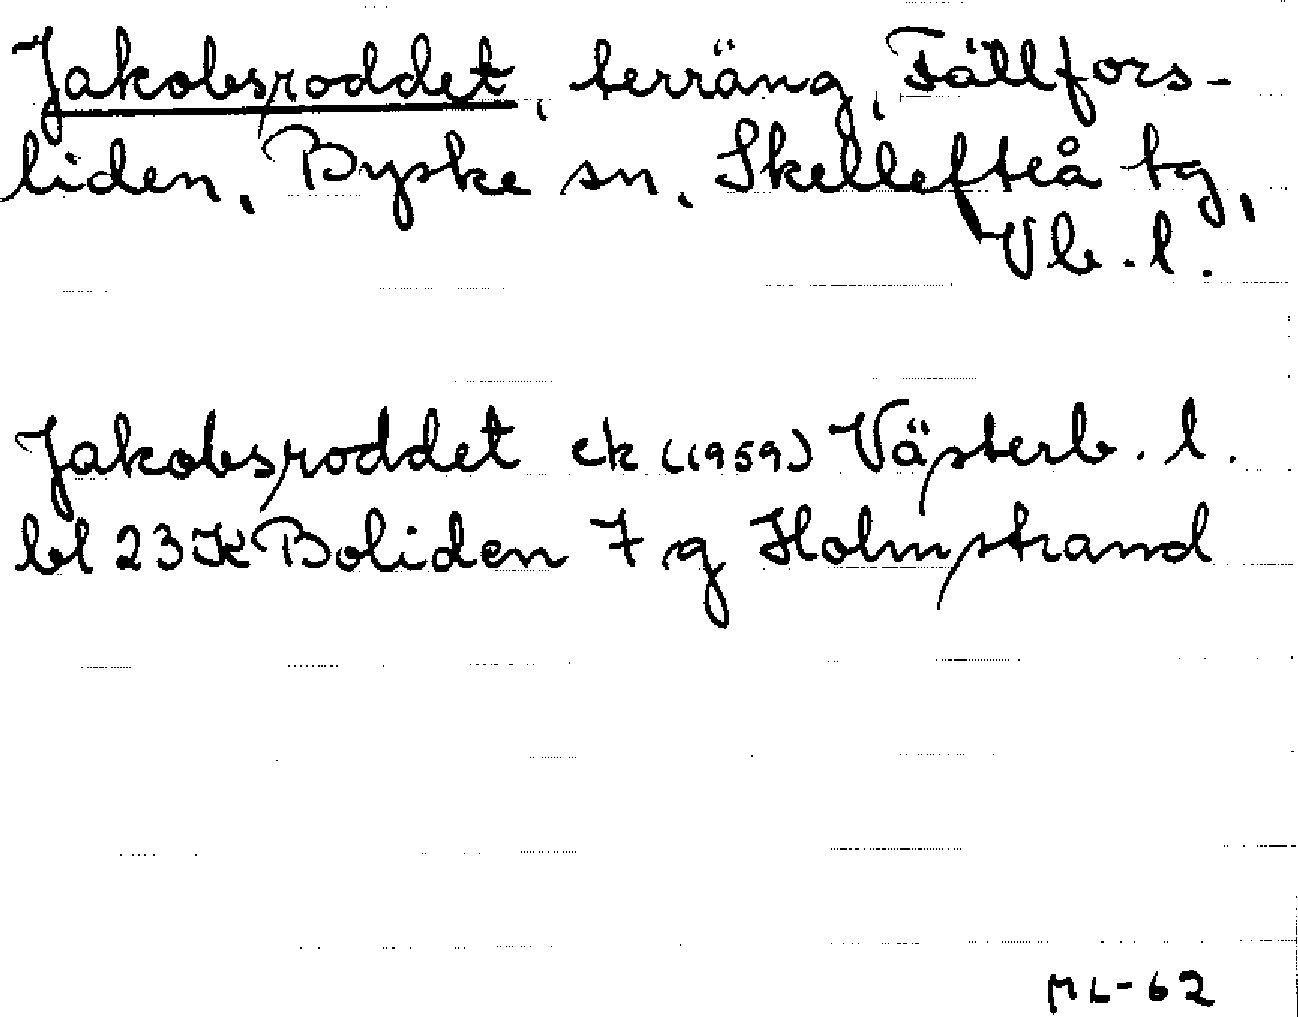 Jakobsroddet, terräng, Fällfors-
liden, Byske sn, Skellefteå tg,
Vb. l.
Jakobsroddet ek (1959) Västerb. l.
bl 23K Boliden 7 g Holmstrand
ML-62